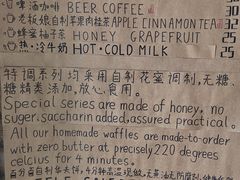 啤酒咖啡 BEER COFFEE
老板娘自制苹果肉桂茶 APPLE CINNAMON TEA
蜂蜜柚子茶 HONEY GRAPEFRUIT 25
热·冷牛奶 HOT·COLD MILK 25
特调系列均采用自制花蜜调制,无糖,
糖精类添加,放心食用。
Special series are made of honey, no
suger. saccharin added, assured practical.
All our homemade waffles are made-to-order
with zero butter at precisely 220 degrees
celcius for 4 minutes.